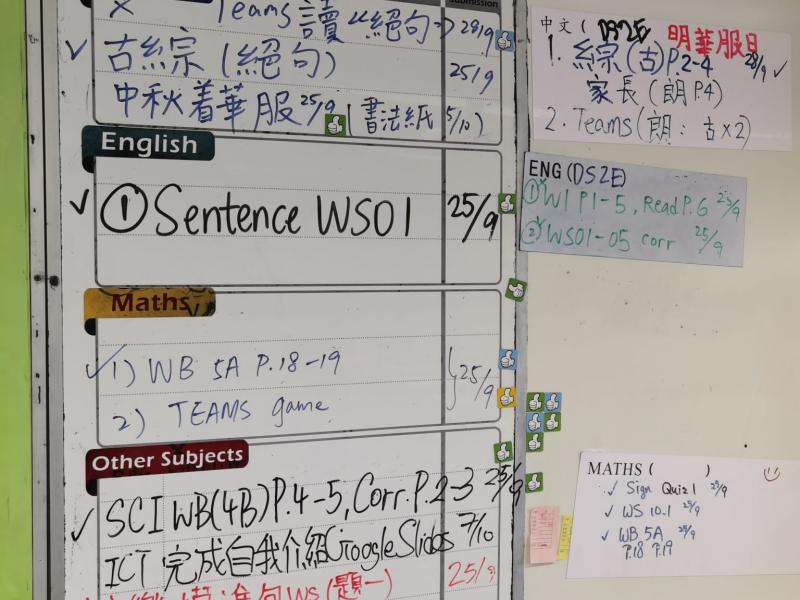 Submission
Teams 讀 "絕句" 28/9
古綜 (絕句) 25/9
中秋着華服 25/9 (書法紙 5/10)
English
① Sentence WS01 25/9
Maths
1) WB 5A P.18-19
2) TEAMS game
25/9
Other Subjects
SCI WB(4B)P.4-5, Corr. P.2-3 25/9
ICT 完成自我介紹Google Slides 7/10
句 WS (題一) 25/9
中文 ( DS2E
明華服日
1. 綜(古)P.2-4 28/9
家長 (朗 P.4)
2. Teams (朗: 古x2)
ENG (DS2E)
① W1 P1-5, Read P.6 25/9
② WS01-05 corr 25/9
MATHS ( )
Sign Quiz 1 25/9
WS 10.1 25/9
WB 5A 25/9
P.18 P.19